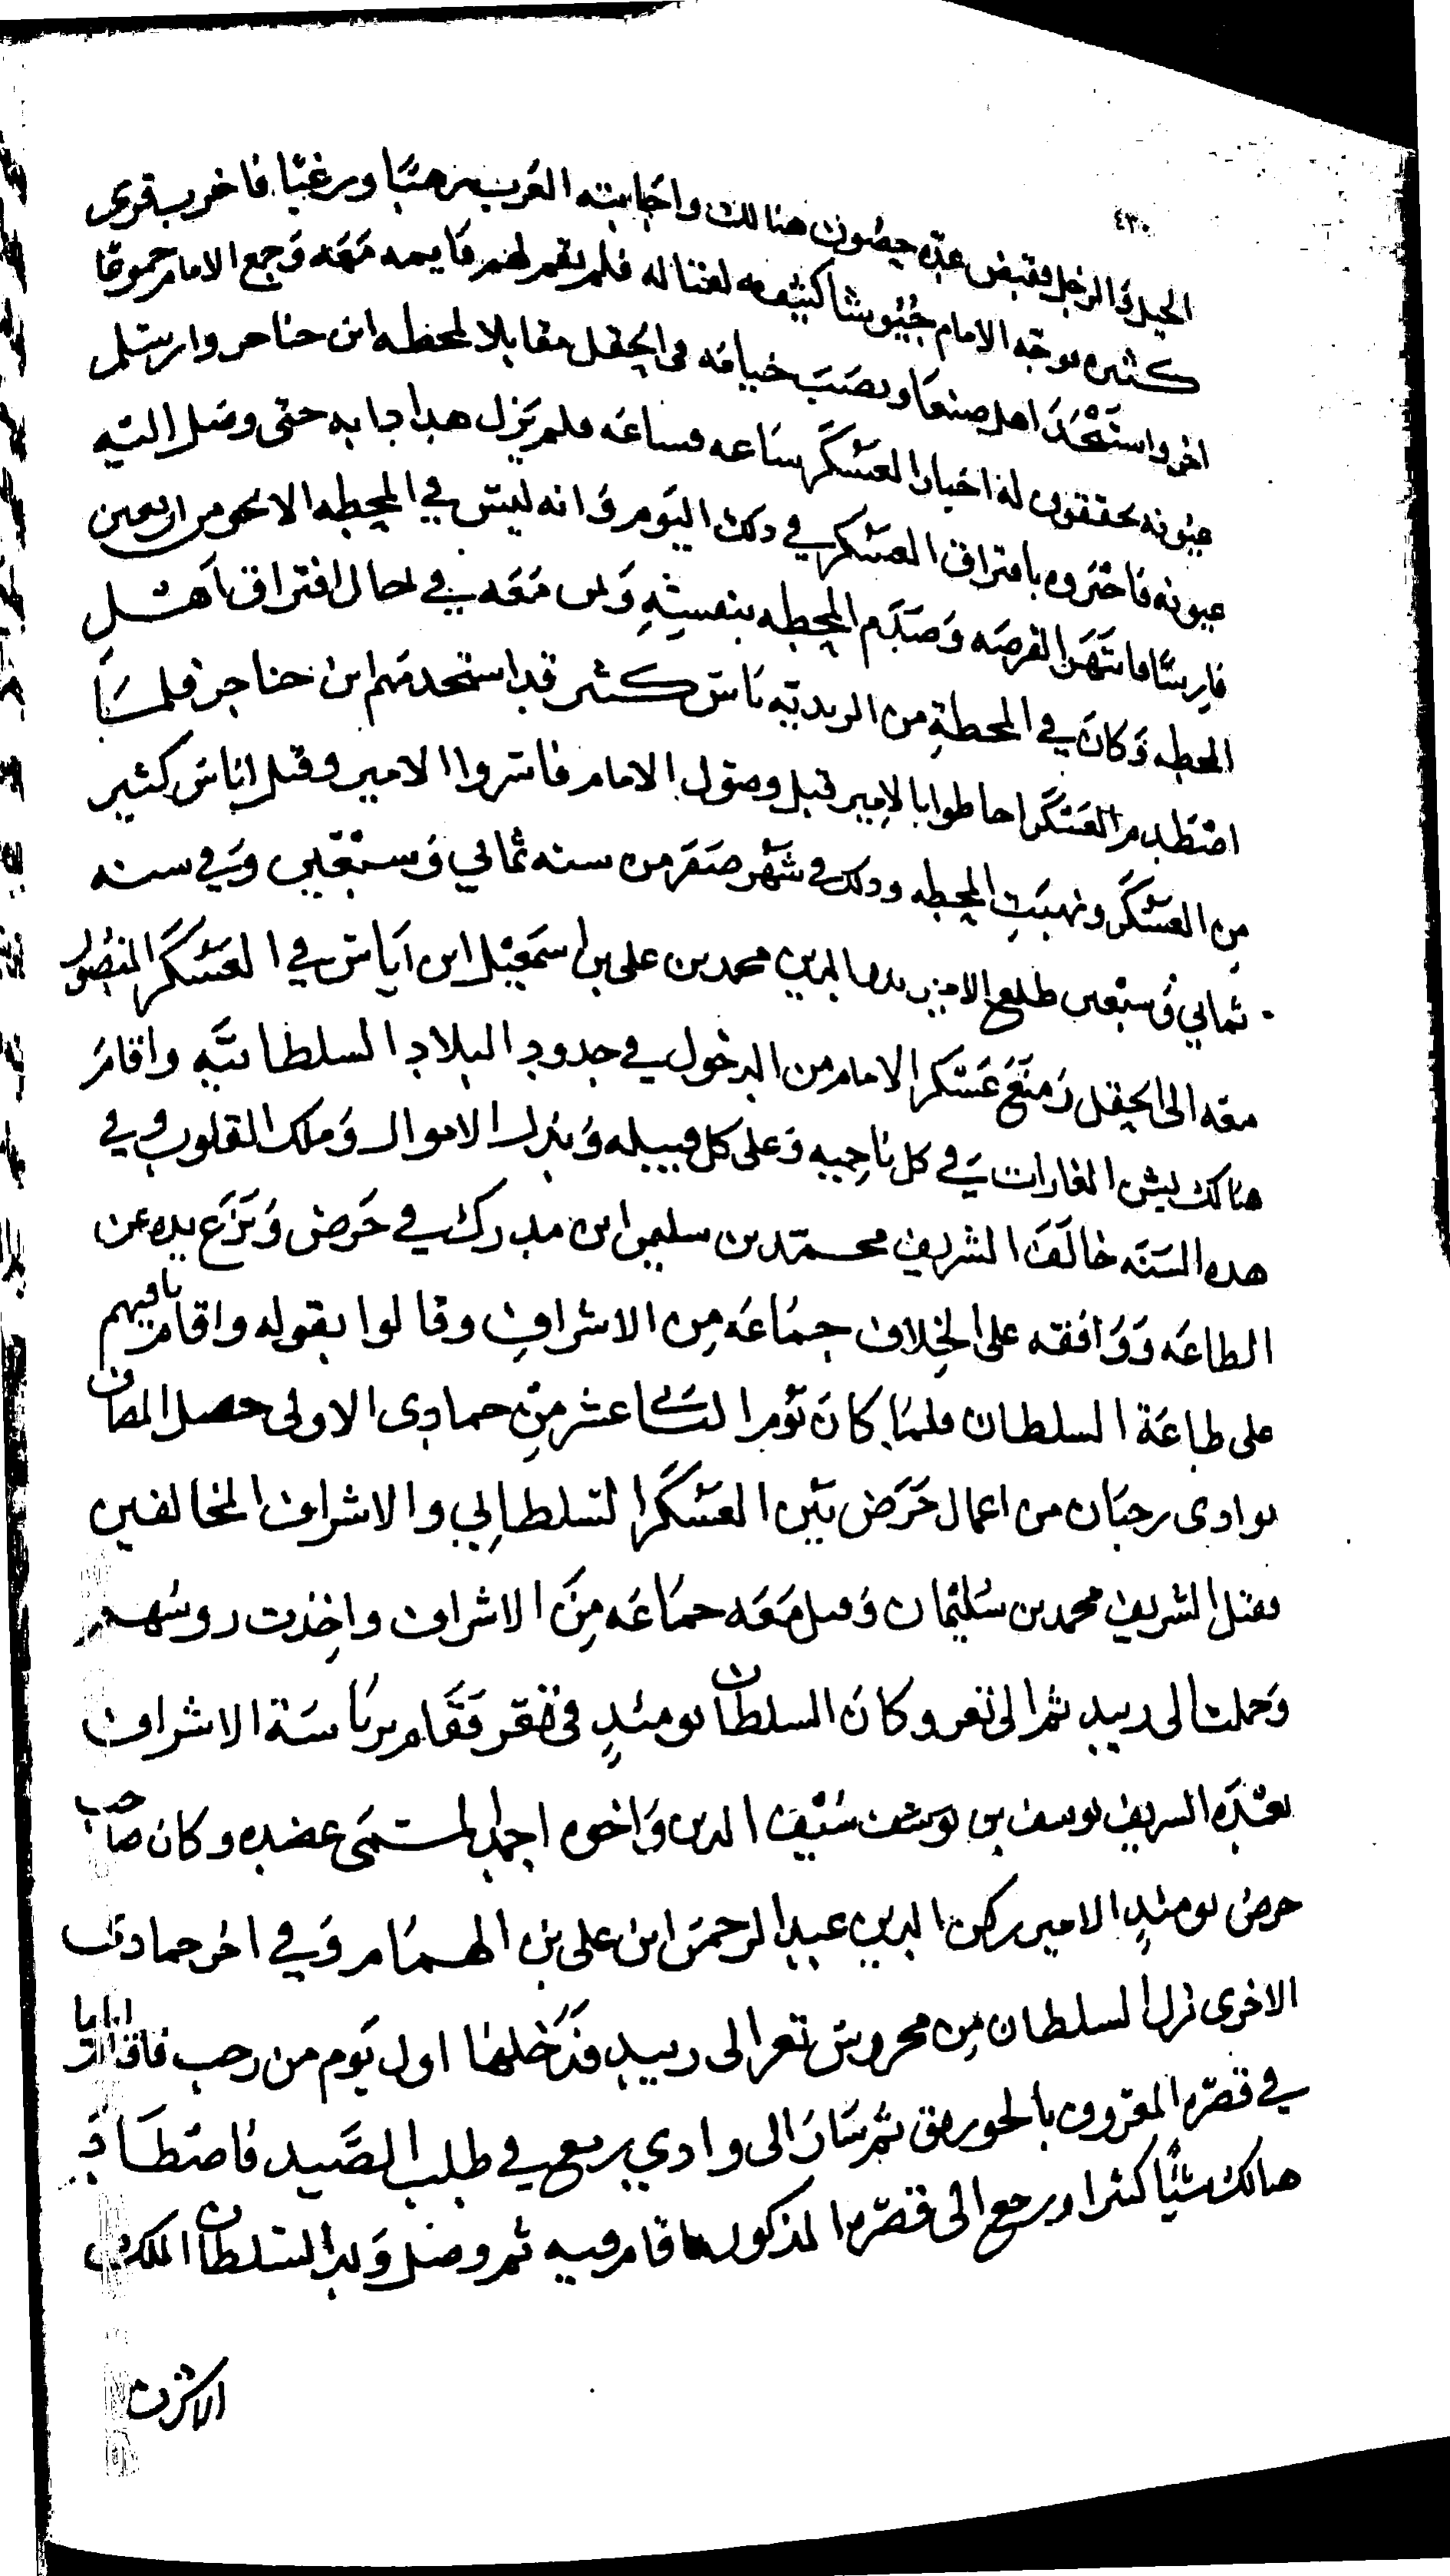 ٤٣٠
الخيل والرجل فقبض عدة حصون هنالك واجابته العرب رهبا ورغبا فاخرب قرى
كثيره فوجه الامام جيوشا كثيفه لقتاله فلم يقم لهم قايمه معه وجمع الامام جموعا
اخر واستنجد اهل صنعا ونصب خيامه في الحقل مقابلا لمحطه ابن حناجر وارسل
عيونه يحققون له اخبار العسكر ساعه فساعه فلم يزل هدا دابه حتى وصل اليه
عيونه فاخبروه بافتراق العسكر في دلك اليوم وانه ليس في المحطه الا نحو من اربعين
فارسا فانتهز الفرصه وصدم المحطه بنفسه ومن معه في حال افتراق اهل
المحطه وكان في المحطة من الزيديه ناس كثير قد استخدمهم ابن حناجر فلما
اصطدم العسكر احاطوا بالامير قبل وصول الامام فاسروا الامير وقتل اناس كثير
من العسكر ونهبت المحطه ودلك في شهر صفر من سنه ثماني وسبعين وفي سنه
ثماني وسبعين طلع الامير بدر الدين محمد بن علي بن اسمعيل ابن اياس في العسكر المنصور
معه الى الحقل ومنع عسكر الامام من الدخول في حدود البلاد السلطانيه واقام
هنالك يشن الغارات في كل ناحيه وعلى كل قبيله وبدل الاموال وملك القلوب وفي
هده السنه خالف الشريف محمد بن سليمن ابن مدرك في حرض ونزع يده عن
الطاعه ووافقه على الخلاف جماعه من الاشراف وقالوا بقوله واقام باقيهم
على طاعة السلطان فلما كان يوم الثاني عشر من جمادى الاولى حصل المصاف
بوادى رحبان من اعمال حرض بين العسكر السلطاني والاشراف المخالفين
فقتل الشريف محمد بن سليمان وقتل معه جماعه من الاشراف واخذت روسهم
وحملت الى زبيد ثم الى تعز وكان السلطان يومئذ في تعز فقام برياسة الاشراف
بعده الشريف يوسف بن يوسف سيف الدين واخوه احمد المسمى عضده وكان صاحب
حرض يومئذ الامير ركن الدين عبد الرحمن ابن علي بن الهمام وفي اخر جمادى
الاخرى نزل السلطان من محروس تعز الى زبيد فدخلها اول يوم من رجب فاقام اياما
في قصره المعروف بالخورنق ثم سار الى وادي رمع في طلب الصيد فاصطاد
هنالك شيا كثيرا ورجع الى قصره المذكور فاقام فيه ثم وصل ولد السلطان الملك
الاشرف